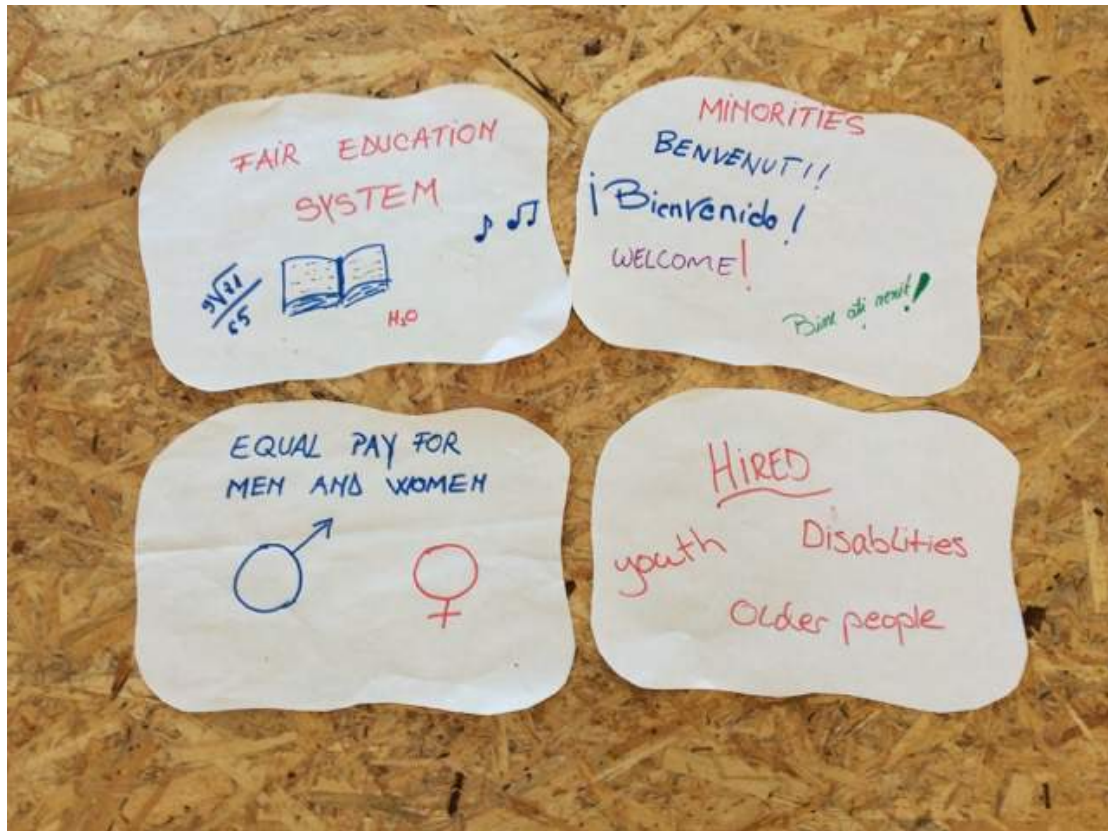 FAIR EDUCATION
SYSTEM
9√71
65
H₂O
MINORITIES
BENVENUTI!!
¡Bienvenido!
WELCOME!
Bine ați venit!
EQUAL PAY FOR
MEN AND WOMEN
HIRED
youth
Disablities
Older people